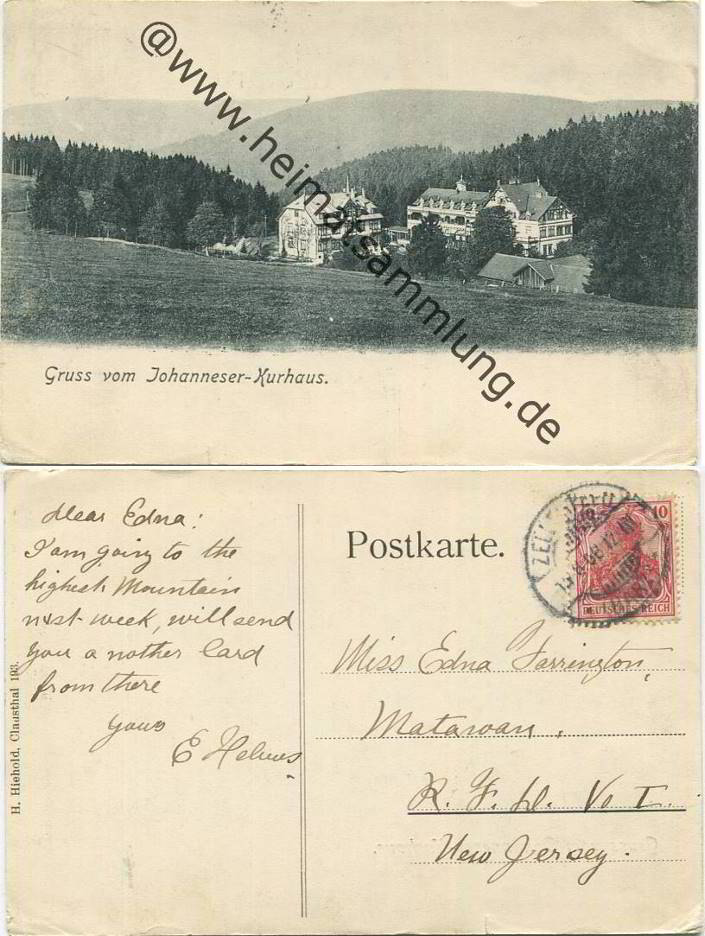 @www.heimatsammlung.de
Gruss vom Johanneser-Kurhaus.
Dear Edna!
I am going to the
highest Mountain
next week, will send
you a nother Card
from there
yours
E Helmes
H. Hiehold, Clausthal 193.
Postkarte.
10
DEUTSCHES REICH
Miss Edna Farrington,
Matawan.
R. F. D. No I.
New Jersey.